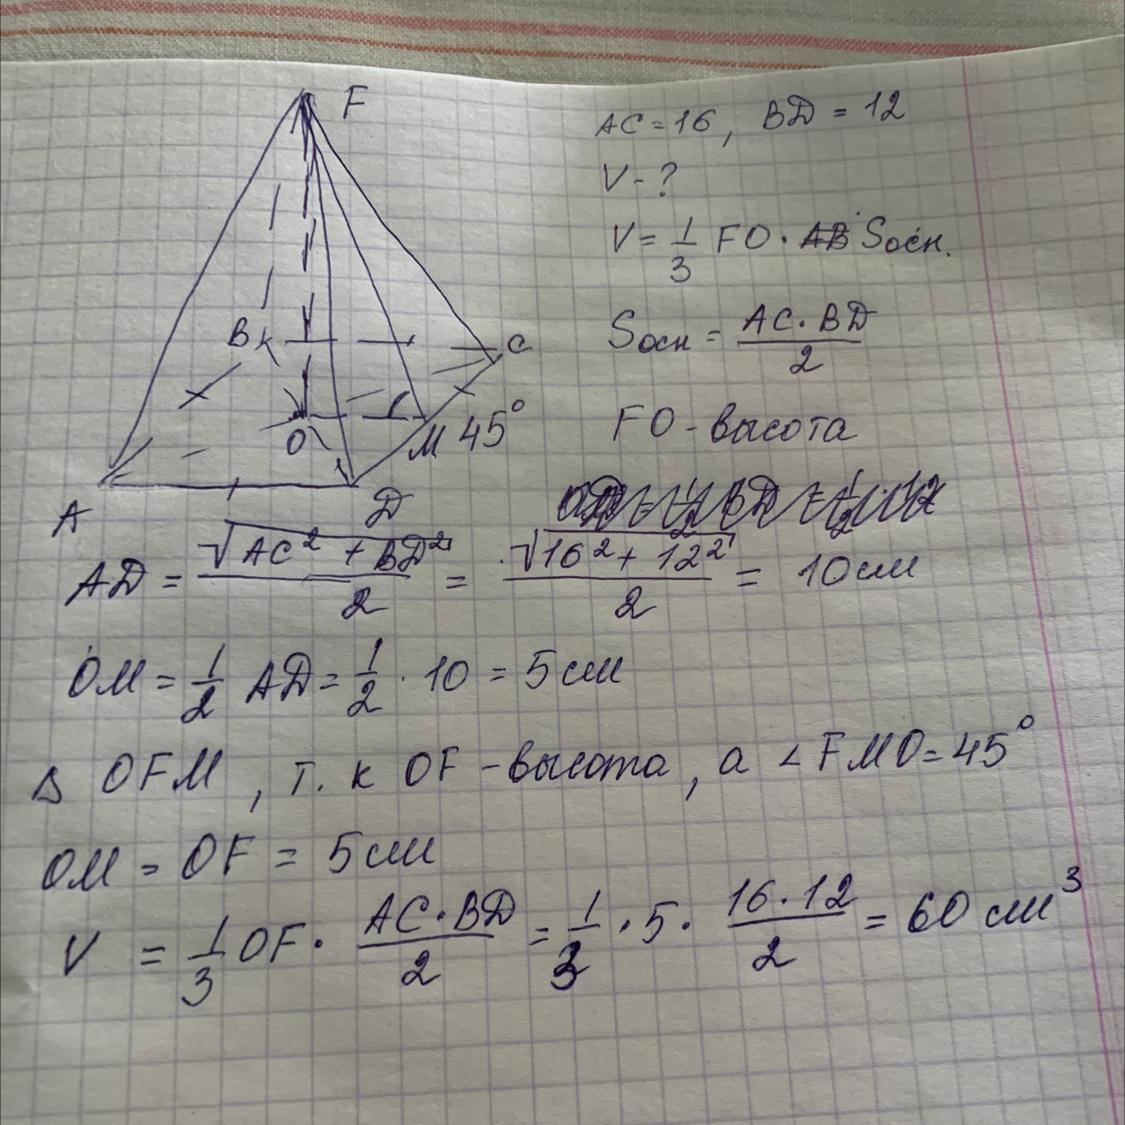 F
AC = 16, BD = 12
V - ?
V = 1/3 FO · AB Sосн.
B
C
Sосн = AC · BD / 2
O
M 45°
FO - высота
A
D
AD = √AC² + BD² / 2 = √16² + 12² / 2 = 10 см
OM = 1/2 AD = 1/2 · 10 = 5 см
Δ OFM, т. к OF - высота, а ∠FMO = 45°
OM = OF = 5 см
V = 1/3 OF · AC · BD / 2 = 1/3 · 5 · 16 · 12 / 2 = 60 см³